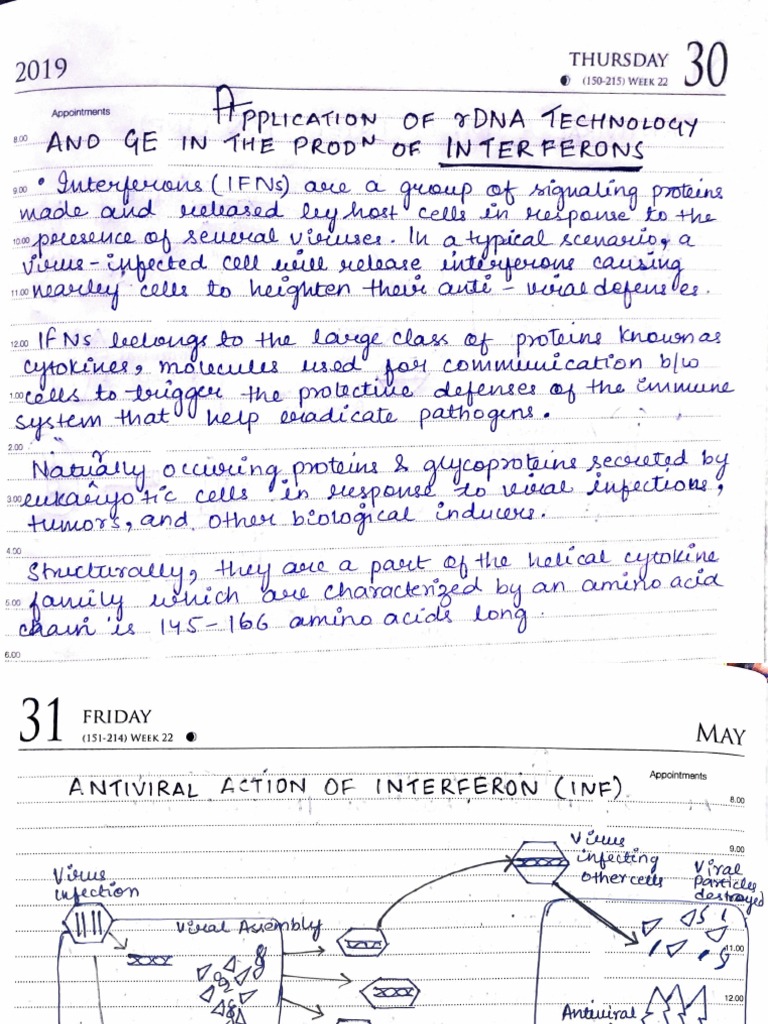 2019
THURSDAY 30
(150-215) WEEK 22
Appointments
APPLICATION OF rDNA TECHNOLOGY
8.00 AND GE IN THE PRODⁿ OF INTERFERONS
9.00 • Interferons (IFNs) are a group of signaling proteins
made and released by host cells in response to the
10.00 presence of several viruses. In a typical scenario, a
virus-infected cell will release interferons causing
11.00 nearby cells to heighten their anti-viral defenses.
12.00 IFNs belongs to the large class of proteins known as
cytokines, molecules used for communication b/w
1.00 cells to trigger the protective defenses of the immune
system that help eradicate pathogens.
2.00
Naturally occuring proteins & glycoproteins secreted by
3.00 eukaryotic cells in response to viral infections,
tumors, and other biological inducers.
4.00
Structurally, they are a part of the helical cytokine
5.00 family which are characterized by an amino acid
chain is 145-166 amino acids long.
6.00
31 FRIDAY
(151-214) WEEK 22
MAY
Appointments
ANTIVIRAL ACTION OF INTERFERON (INF).
8.00
9.00
Virus
infecting
other cells
Virus
infection
Viral
Particles
destroyed
Viral Assembly
11.00
12.00
Antiviral